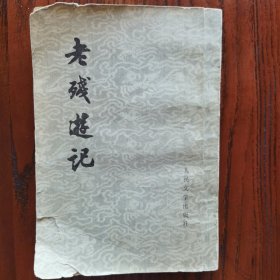 老残游记
人民文学出版社